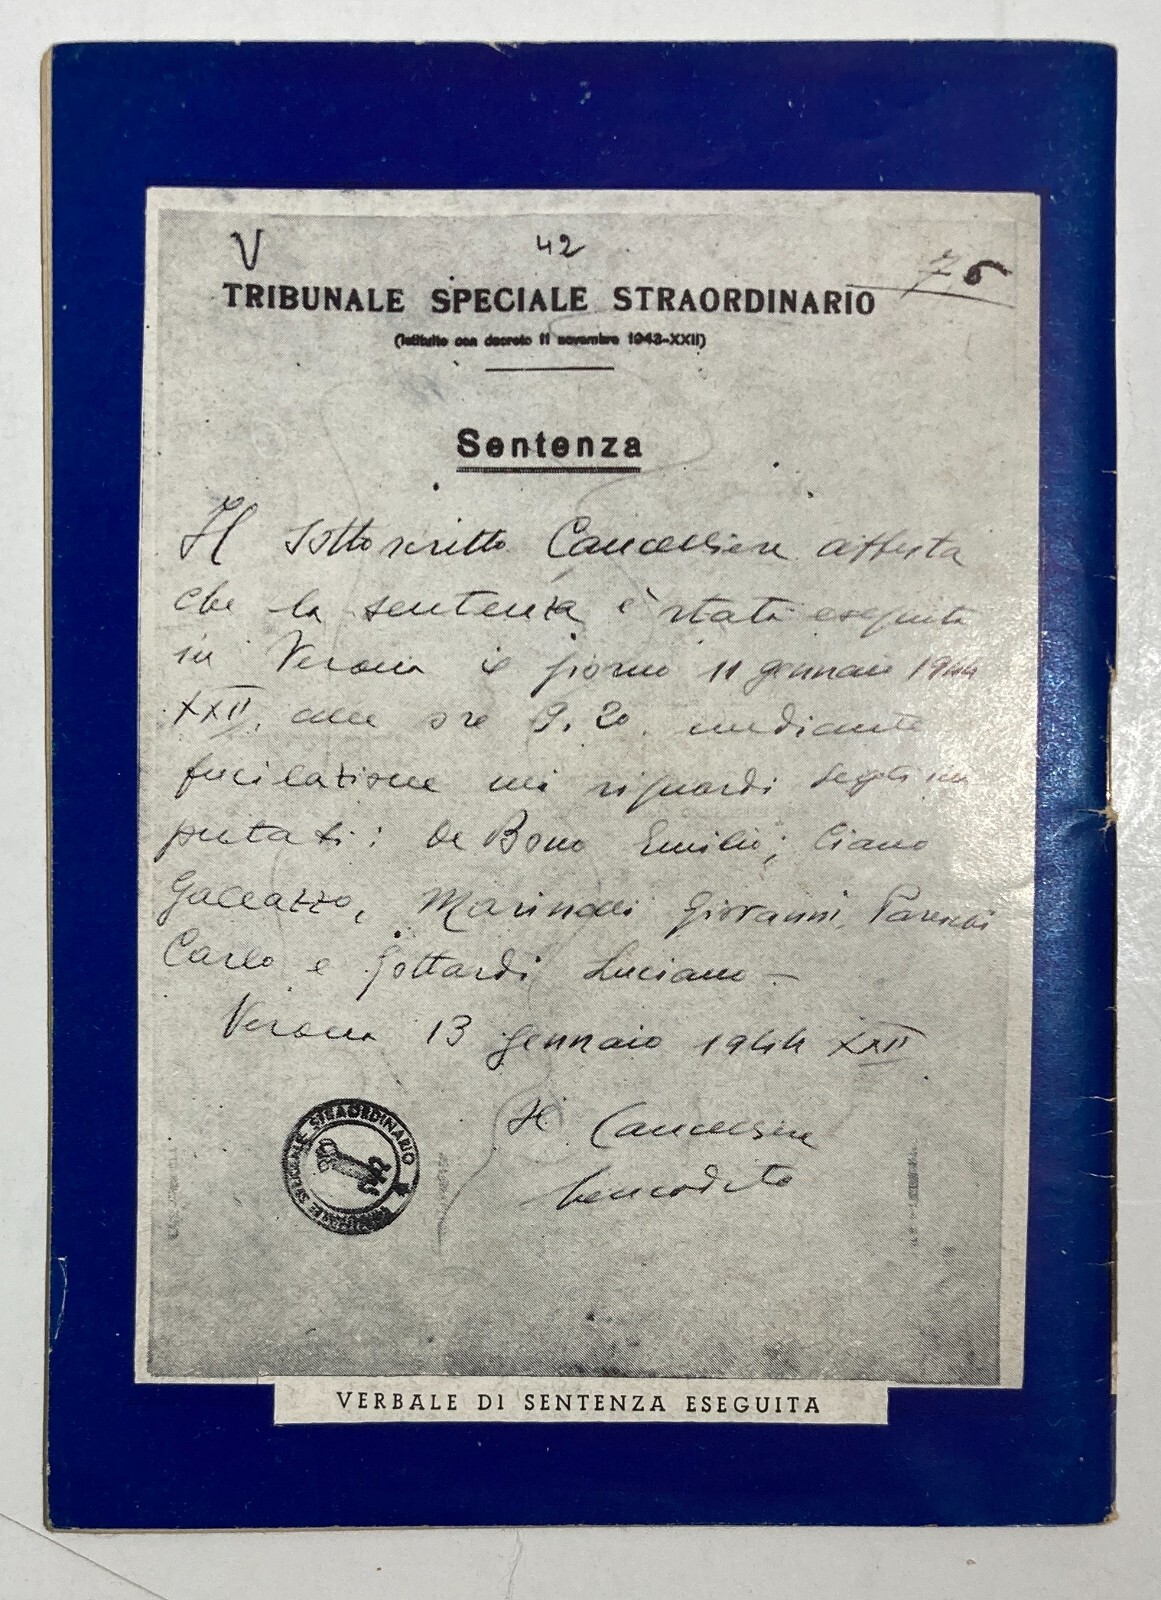 V
42
76
TRIBUNALE SPECIALE STRAORDINARIO
(Istituito con decreto 11 novembre 1943-XXII)
Sentenza
Il sottoscritto Cancelliere attesta
che la sentenza è stata eseguita
in Verona il giorno 11 gennaio 1944
XXII, alle ore 9.20, mediante
fucilazione nei riguardi degli im
putati: De Bono Emilio; Ciano
Galeazzo, Marinelli Giovanni, Pareschi
Carlo e Gottardi Luciano —
Verona 13 gennaio 1944 XXII
Il Cancelliere
TRIBUNALE SPECIALE STRAORDINARIO
VERBALE DI SENTENZA ESEGUITA